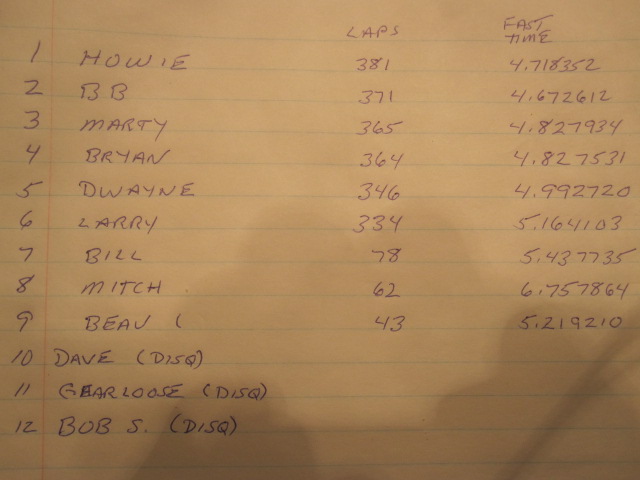 LAPS FAST TIME
1 HOWIE 381 4.718352
2 BB 371 4.672612
3 MARTY 365 4.827934
4 BRYAN 364 4.827531
5 DWAYNE 346 4.992720
6 LARRY 334 5.164103
7 BILL 78 5.437735
8 MITCH 62 6.757864
9 BEAU ( 43 5.219210
10 DAVE (DISQ)
11 GEARLOOSE (DISQ)
12 BOB S. (DISQ)